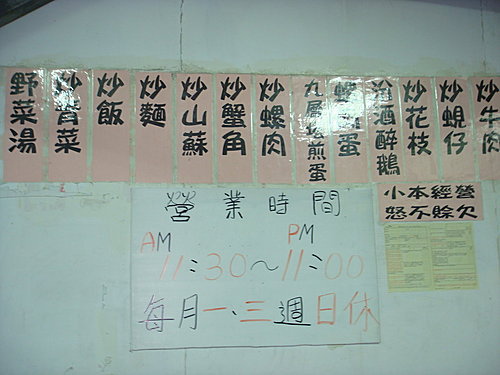 野菜湯
炒青菜
炒飯
炒麵
炒山蘇
炒蟹角
炒螺肉
九層塔煎蛋
酒醉鵝
炒花枝
炒蜆仔
炒牛肉
小本經營
恕不賒欠
營業時間
AM PM
11:30~11:00
每月一、三週日休